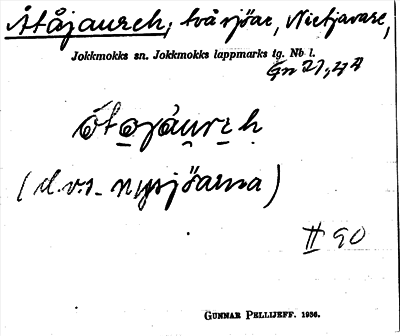 Åtåjaurch, två sjöar, Nietjavare,
Jokkmokks sn. Jokkmokks lappmarks tg. Nb l.
Gn 27,44
ótojáurh
(d.v.s. nysjöarna)
II 90
GUNNAR PELLIJEFF. 1936.